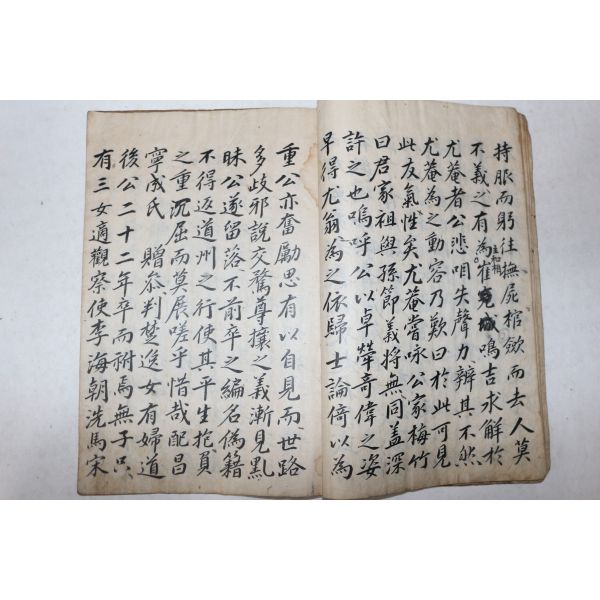 持服而躬往撫屍棺斂而去人莫
不義之有為主和相崔完城鳴吉求解於
尤菴者公悲咽失聲力辨其不然
尤菴為之動容乃歎曰於此可見
此友氣性矣尤菴嘗咏公家梅竹
曰君家祖與孫節義將無同盖深
許之也嗚呼公以卓犖奇偉之姿
早得尤翁為之依歸士論倚以為
重公亦奮勵思有以自見而世路
多歧邪說交騖尊攘之義漸見點
昧公遂留落不前卒之編名偽籍
不得返道州之行使其平生抱負
之重沉屈而莫展嗟乎惜哉配昌
寧成氏贈叅判楚逸女有婦道
後公二十二年卒而祔焉無子只
有三女適觀察使李海朝洗馬宋